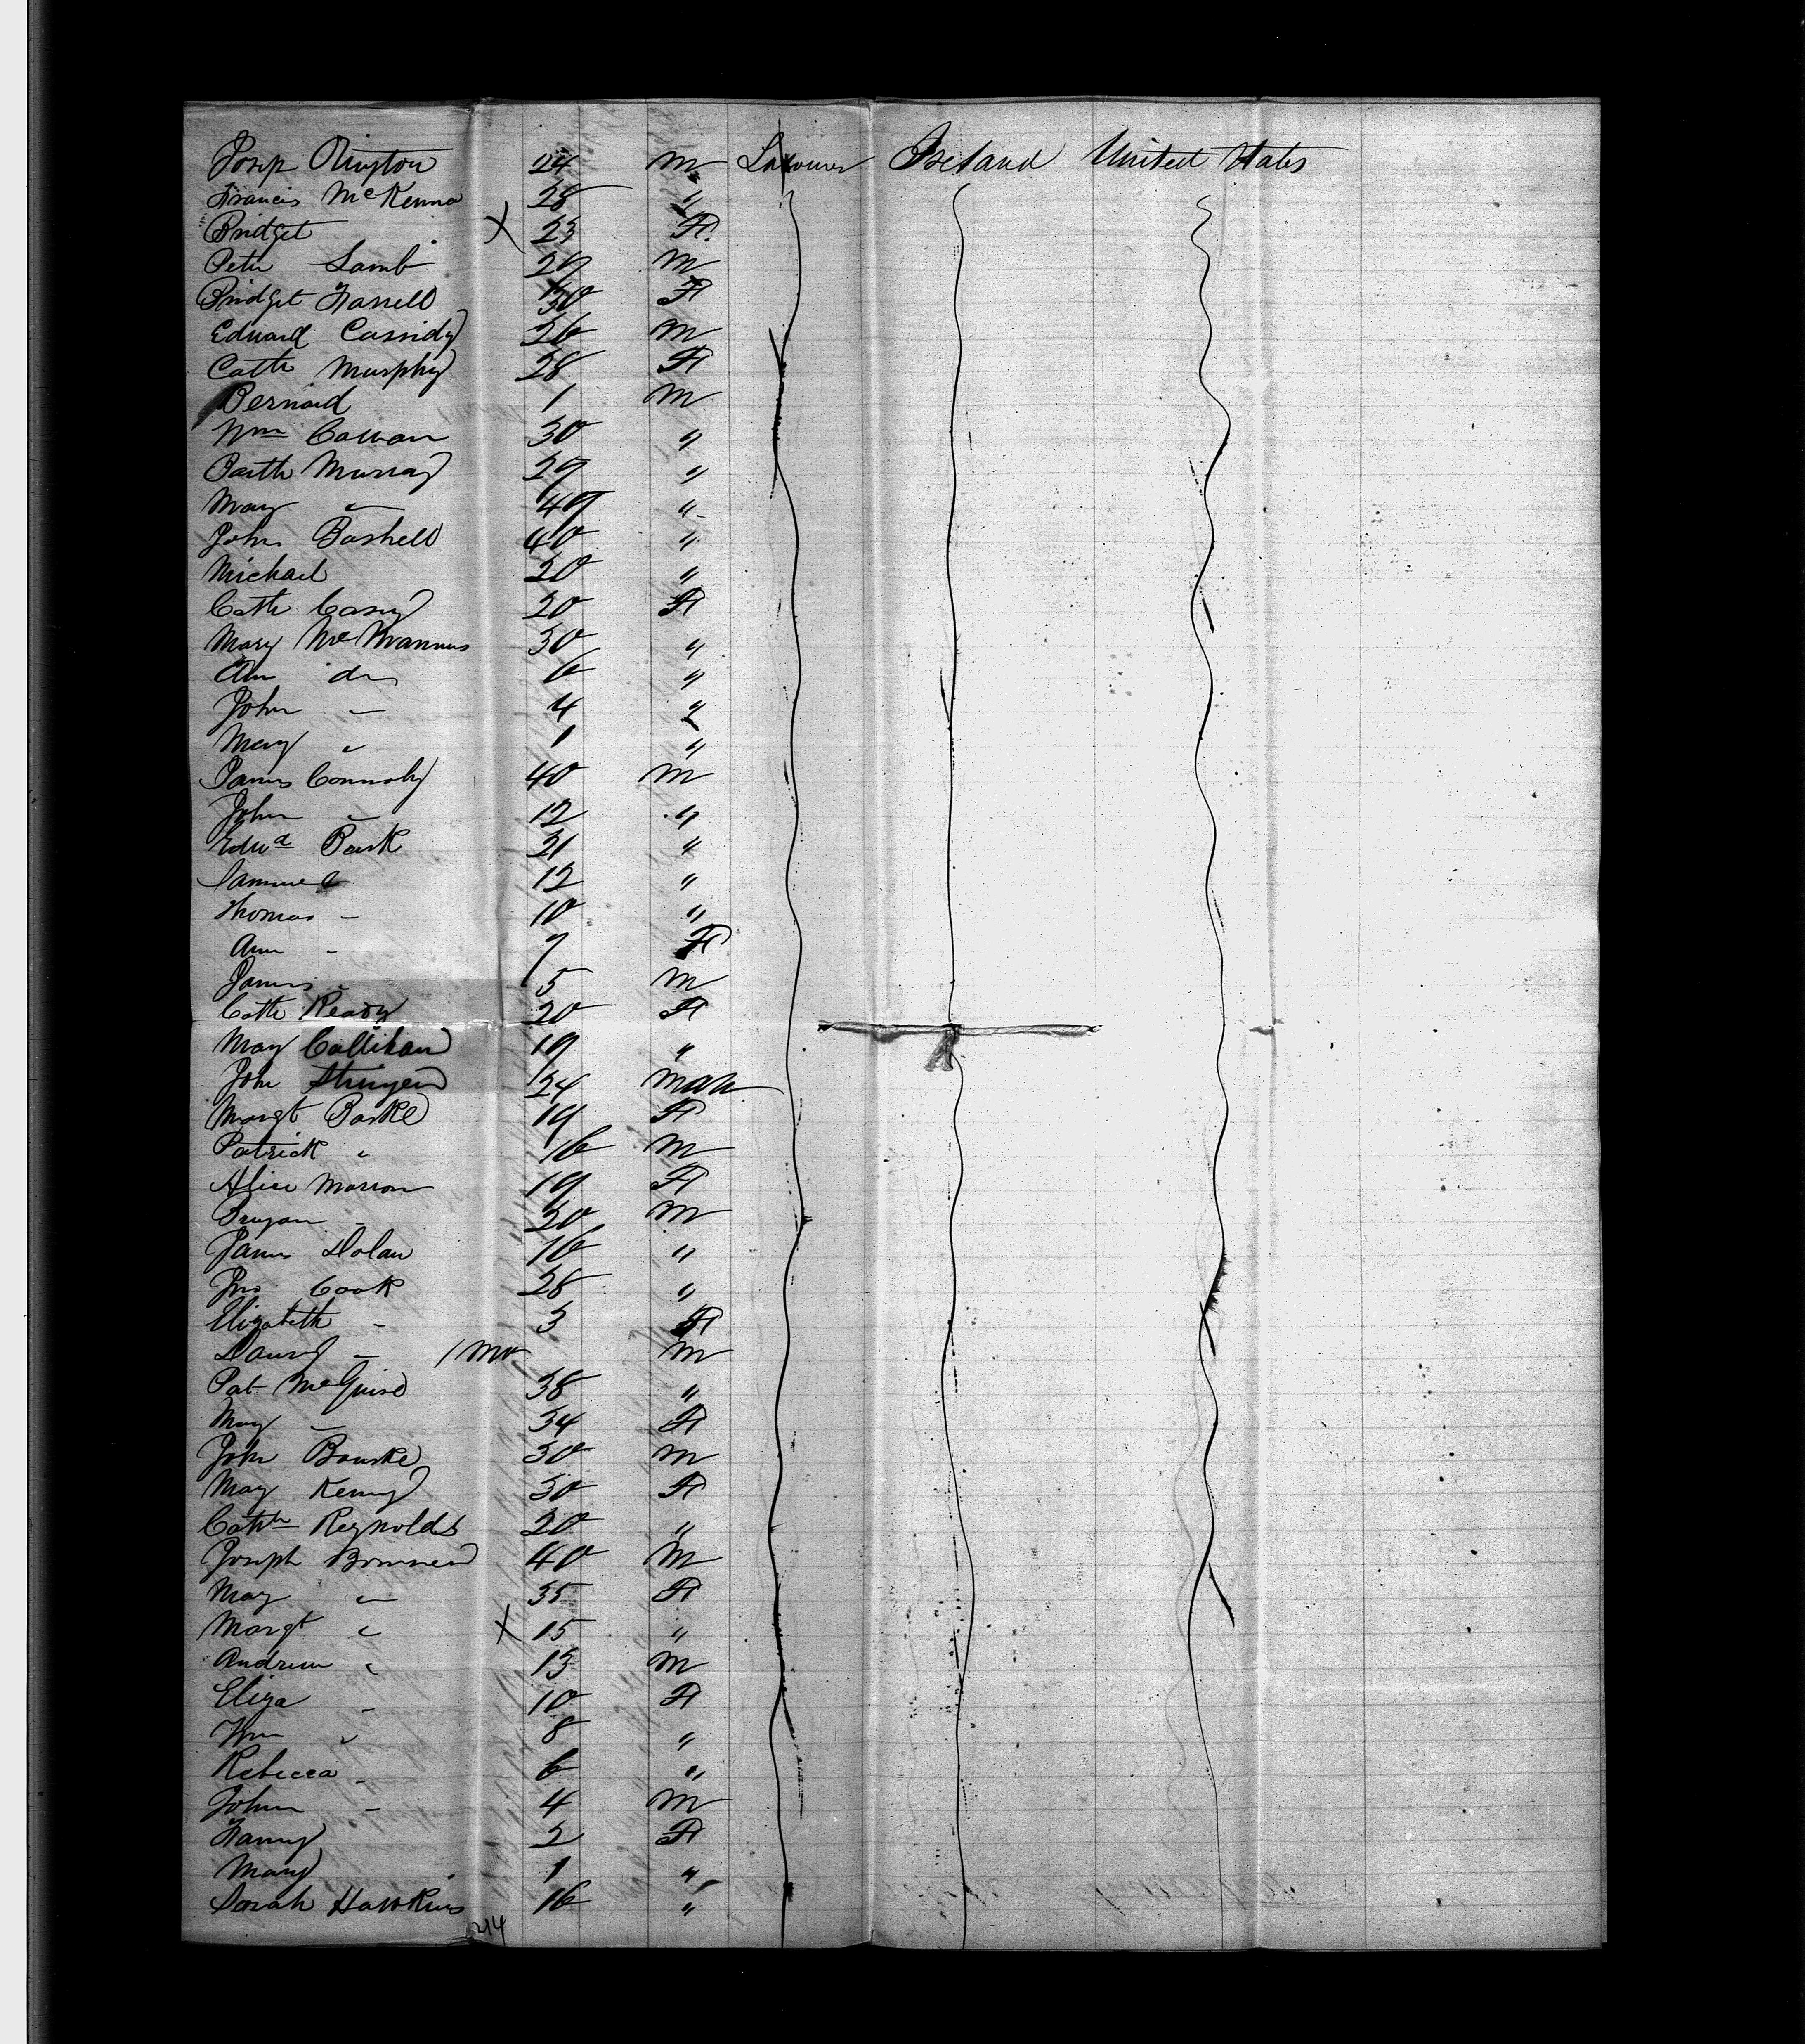 24 m Labourer Ireland United States
Francis McKenna 28 "
Bridget X 23 F.
Peter Lamb 29 m
Bridget Farrell 30 F
Edward Cassidy 26 m
Cath Murphy 28 F
Bernard 1 m
Wm Cowan 30 "
Barth Murray 29 "
Mary " 49 "
John Bashell 40 "
Michael 20 "
Cath Casey 20 F
Mary McMannus 30 "
Ann do 6 "
John " 4 "
Mary " 1 "
James Connoly 40 m
John " 12 "
Edwd Park 21 "
Samuel 12 "
Thomas " 10 "
Ann " 7 F
James " 5 m
Cath Ready 20 F
Mary Callihan 19 "
John 24 male
Margt Barke 19 F
Patrick " 16 m
Alice Marron 19 F
Bryan " 20 m
James Dolan 16 "
Jno Cook 28 "
Elizabeth " 3 F
" 1 mo m
Pat McGuire 38 "
Mary " 34 F
John Bourke 30 m
Mary Kenny 30 F
Cathn Reynolds 20 "
Joseph 40 m
Mary " 35 F
Margt " X 15 "
Andrew " 13 m
Eliza " 10 F
Wm " 8 "
Rebecca " 6 "
John " 4 m
Fanny 2 F
Mary 1 "
Sarah Hawkins 16 "
214